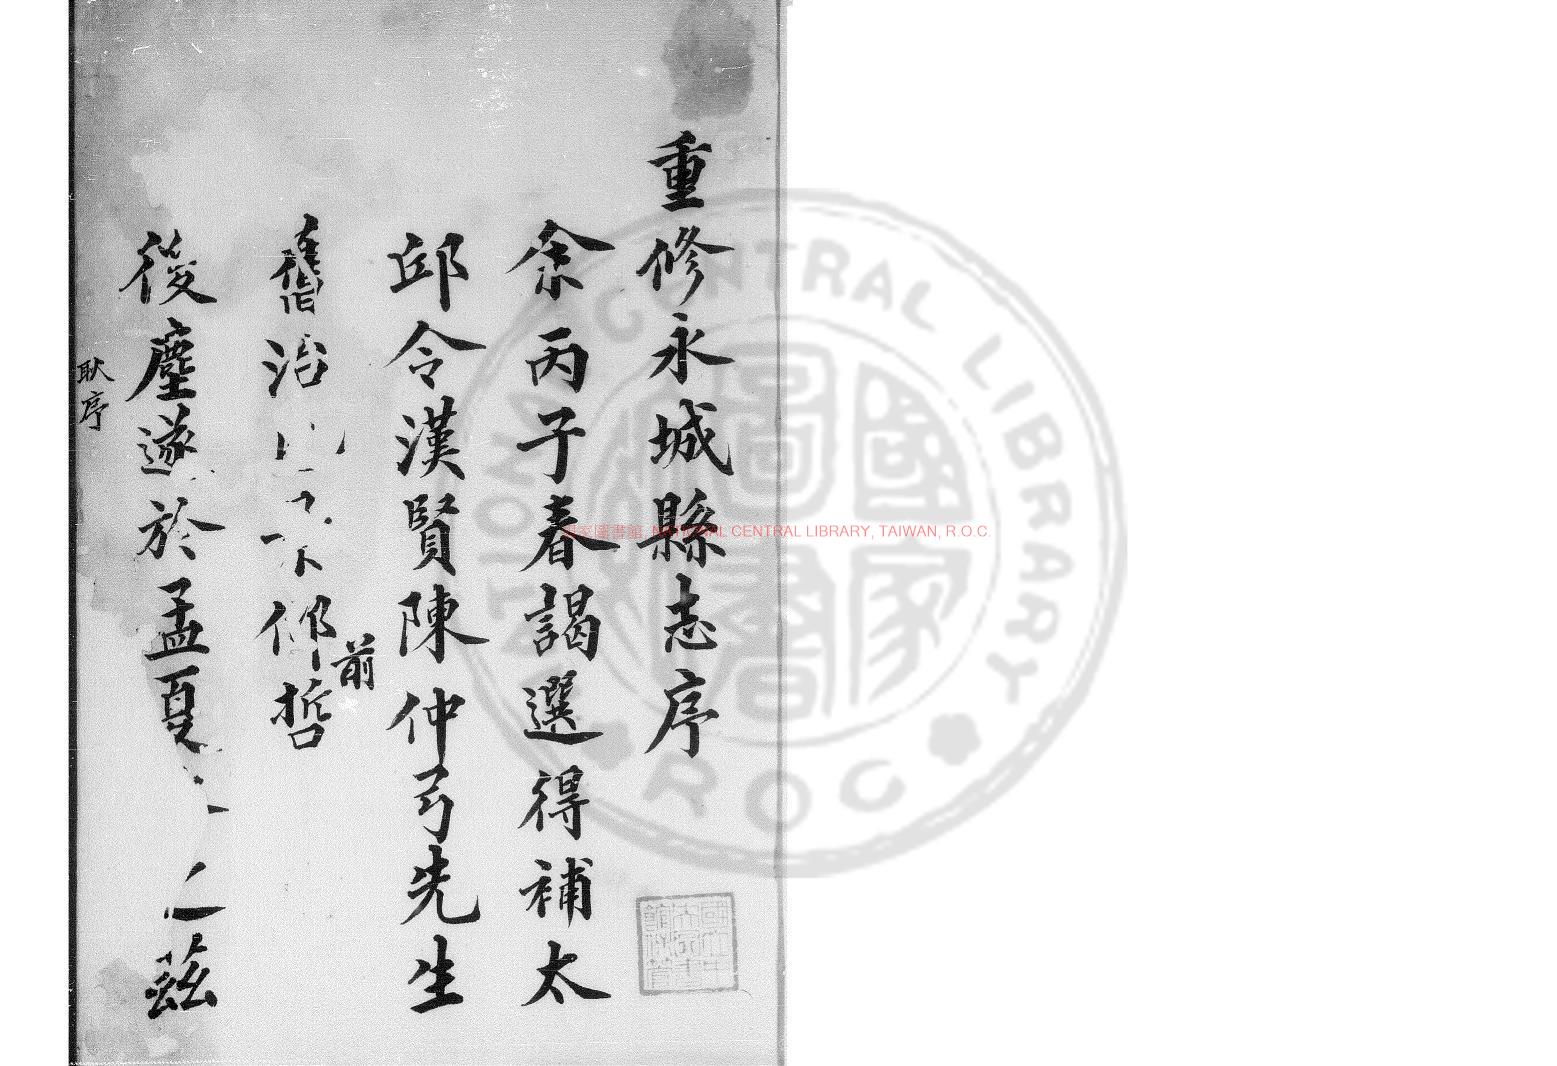 重修永城縣志序
余丙子春謁選得補太
邱令漢賢陳仲弓先生
舊治
仰
前
哲
後塵遂於孟夏之茲
耿序
國家圖書館 NATIONAL CENTRAL LIBRARY, TAIWAN, R.O.C.
NATIONAL CENTRAL LIBRARY
ROC
國家圖書